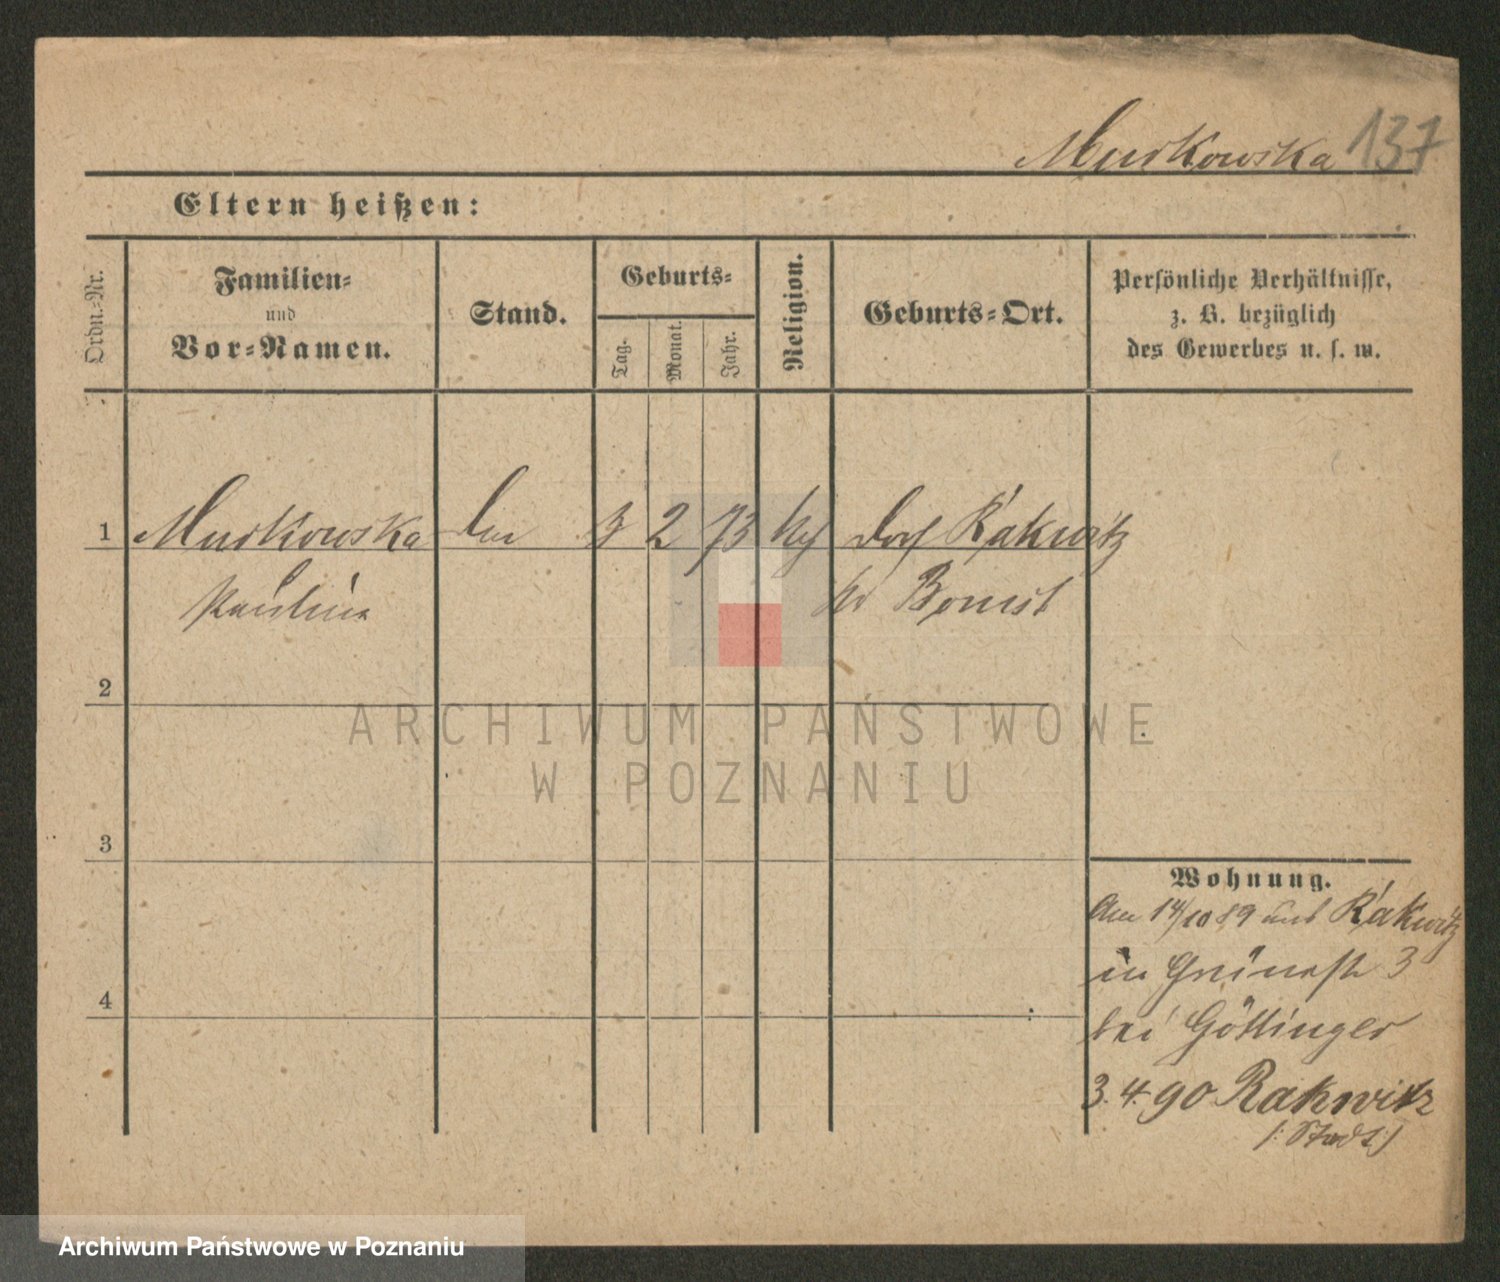 Murkowska 137
Eltern heißen:
Ordn.-Nr.
Familien-
und
Vor-Namen.
Stand.
Geburts-
Tag.
Monat.
Jahr.
Religion.
Geburts-Ort.
Persönliche Verhältnisse,
z. B. bezüglich
des Gewerbes u. s. w.
1 Murkowska 3 2 73 Dorf Rakwitz
Pauline Kr Bomst
2
3
4
Wohnung.
Am 14/10 89 aus Rakwitz
in Grünestr 3
bei Göttinger
3.4.90 Rakwitz
/: Stadt :/
ARCHIWUM PAŃSTWOWE
W POZNANIU
Archiwum Państwowe w Poznaniu